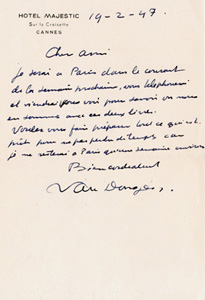 HOTEL MAJESTIC
Sur la Croisette
CANNES
19-2-47.
Cher ami
Je serai à Paris dans le courant
de la semaine prochaine, vous telephonerai
et viendrai vous voir pour savoir où nous
en sommes avec ces deux livres.
Voulez vous faire préparer tout ce qui est
prêt pour ne pas perdre de temps car
je ne resterai à Paris qu'une semaine environ
Bien cordialement
Van Dongen,